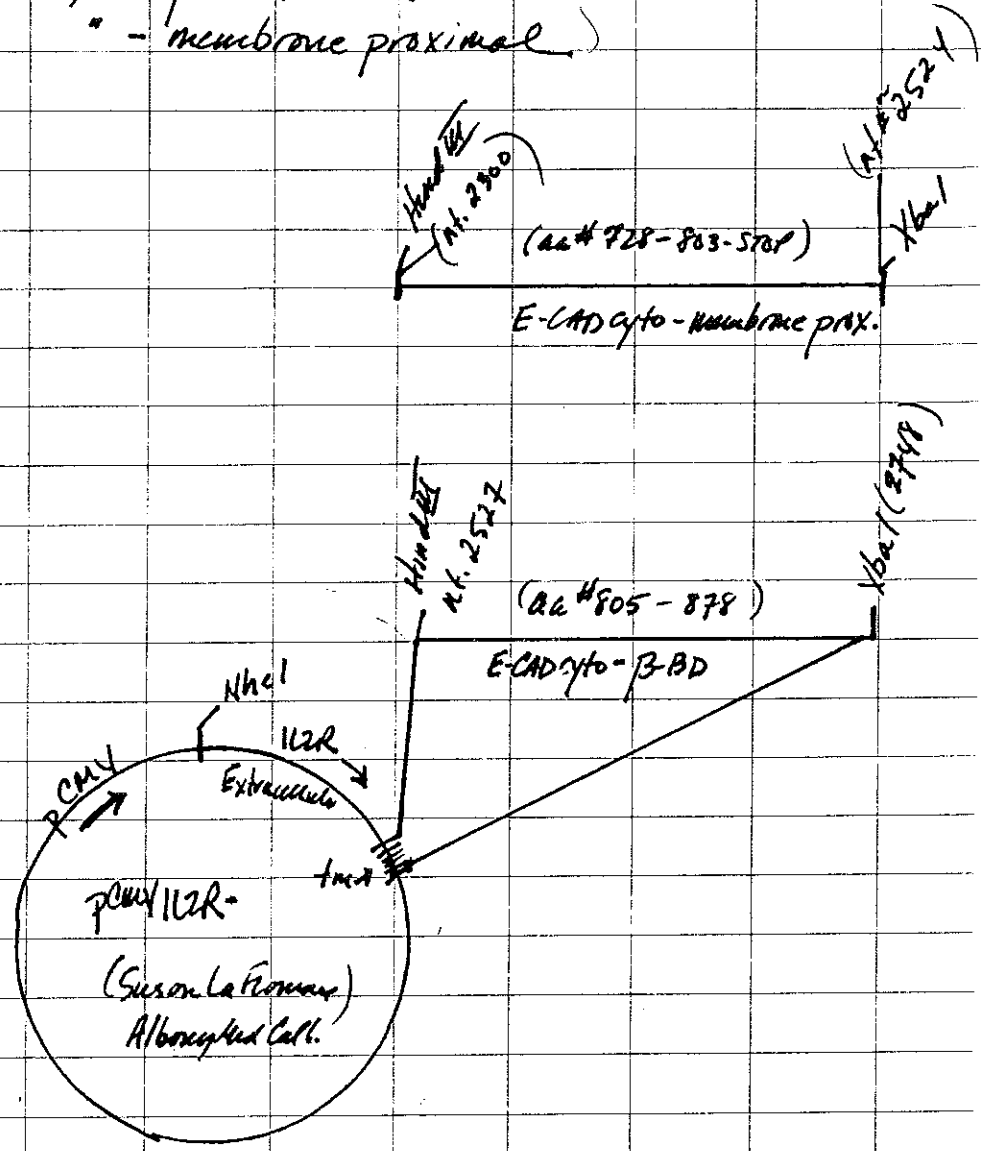 " - membrane proximal)
HindIII
(nt. 2300)
(nt# 2524)
XbaI
(aa# 728-803-STOP)
E-CAD cyto-membrane prox.
HindIII
nt. 2527
XbaI (2748)
(aa #805-878)
E-CADcyto-β-BD
NheI
IL2R
Extracellular
pCMV
tm
pCMV/IL2R-
(Susan LaFlamme)
Albany Med Coll.